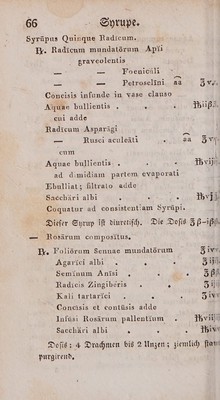 66 Syrupe.
Syrŭpus Quinque Radicum.
℞. Radicum mundatōrum Apĭi
graveolentis
— — Foenicŭli
— — Petroselīni aā ʒv.
Concisis infunde in vase clauso
Aquae bullientis . . . ℔iiβ.
cui adde
Radicum Asparăgi
— Rusci aculeāti . aā ʒv.
cum
Aquae bullientis . . . ℔
ad dimidiam partem evaporati
Ebulliat; filtrato adde
Sacchări albi . . . ℔vj
Coquatur ad consistentiam Syrŭpi.
Dieser Syrup ist diuretisch. Die Dosis ʒβ-iβ
— Rosārum composĭtus.
℞. Foliōrum Sennae mundatōrum ʒiv
Agarĭci albi . . . ʒij
Semĭnum Anīsi . . ʒ
Radicis Zingibĕris . . ʒ
Kali tartarĭci . . . ʒiv
Concisis et contūsis adde
Infūsi Rosārum pallentium . ℔vii
Sacchări albi . . . ℔iv
Dosis: 4 Drachmen bis 2 Unzen; ziemlich
purgirend.